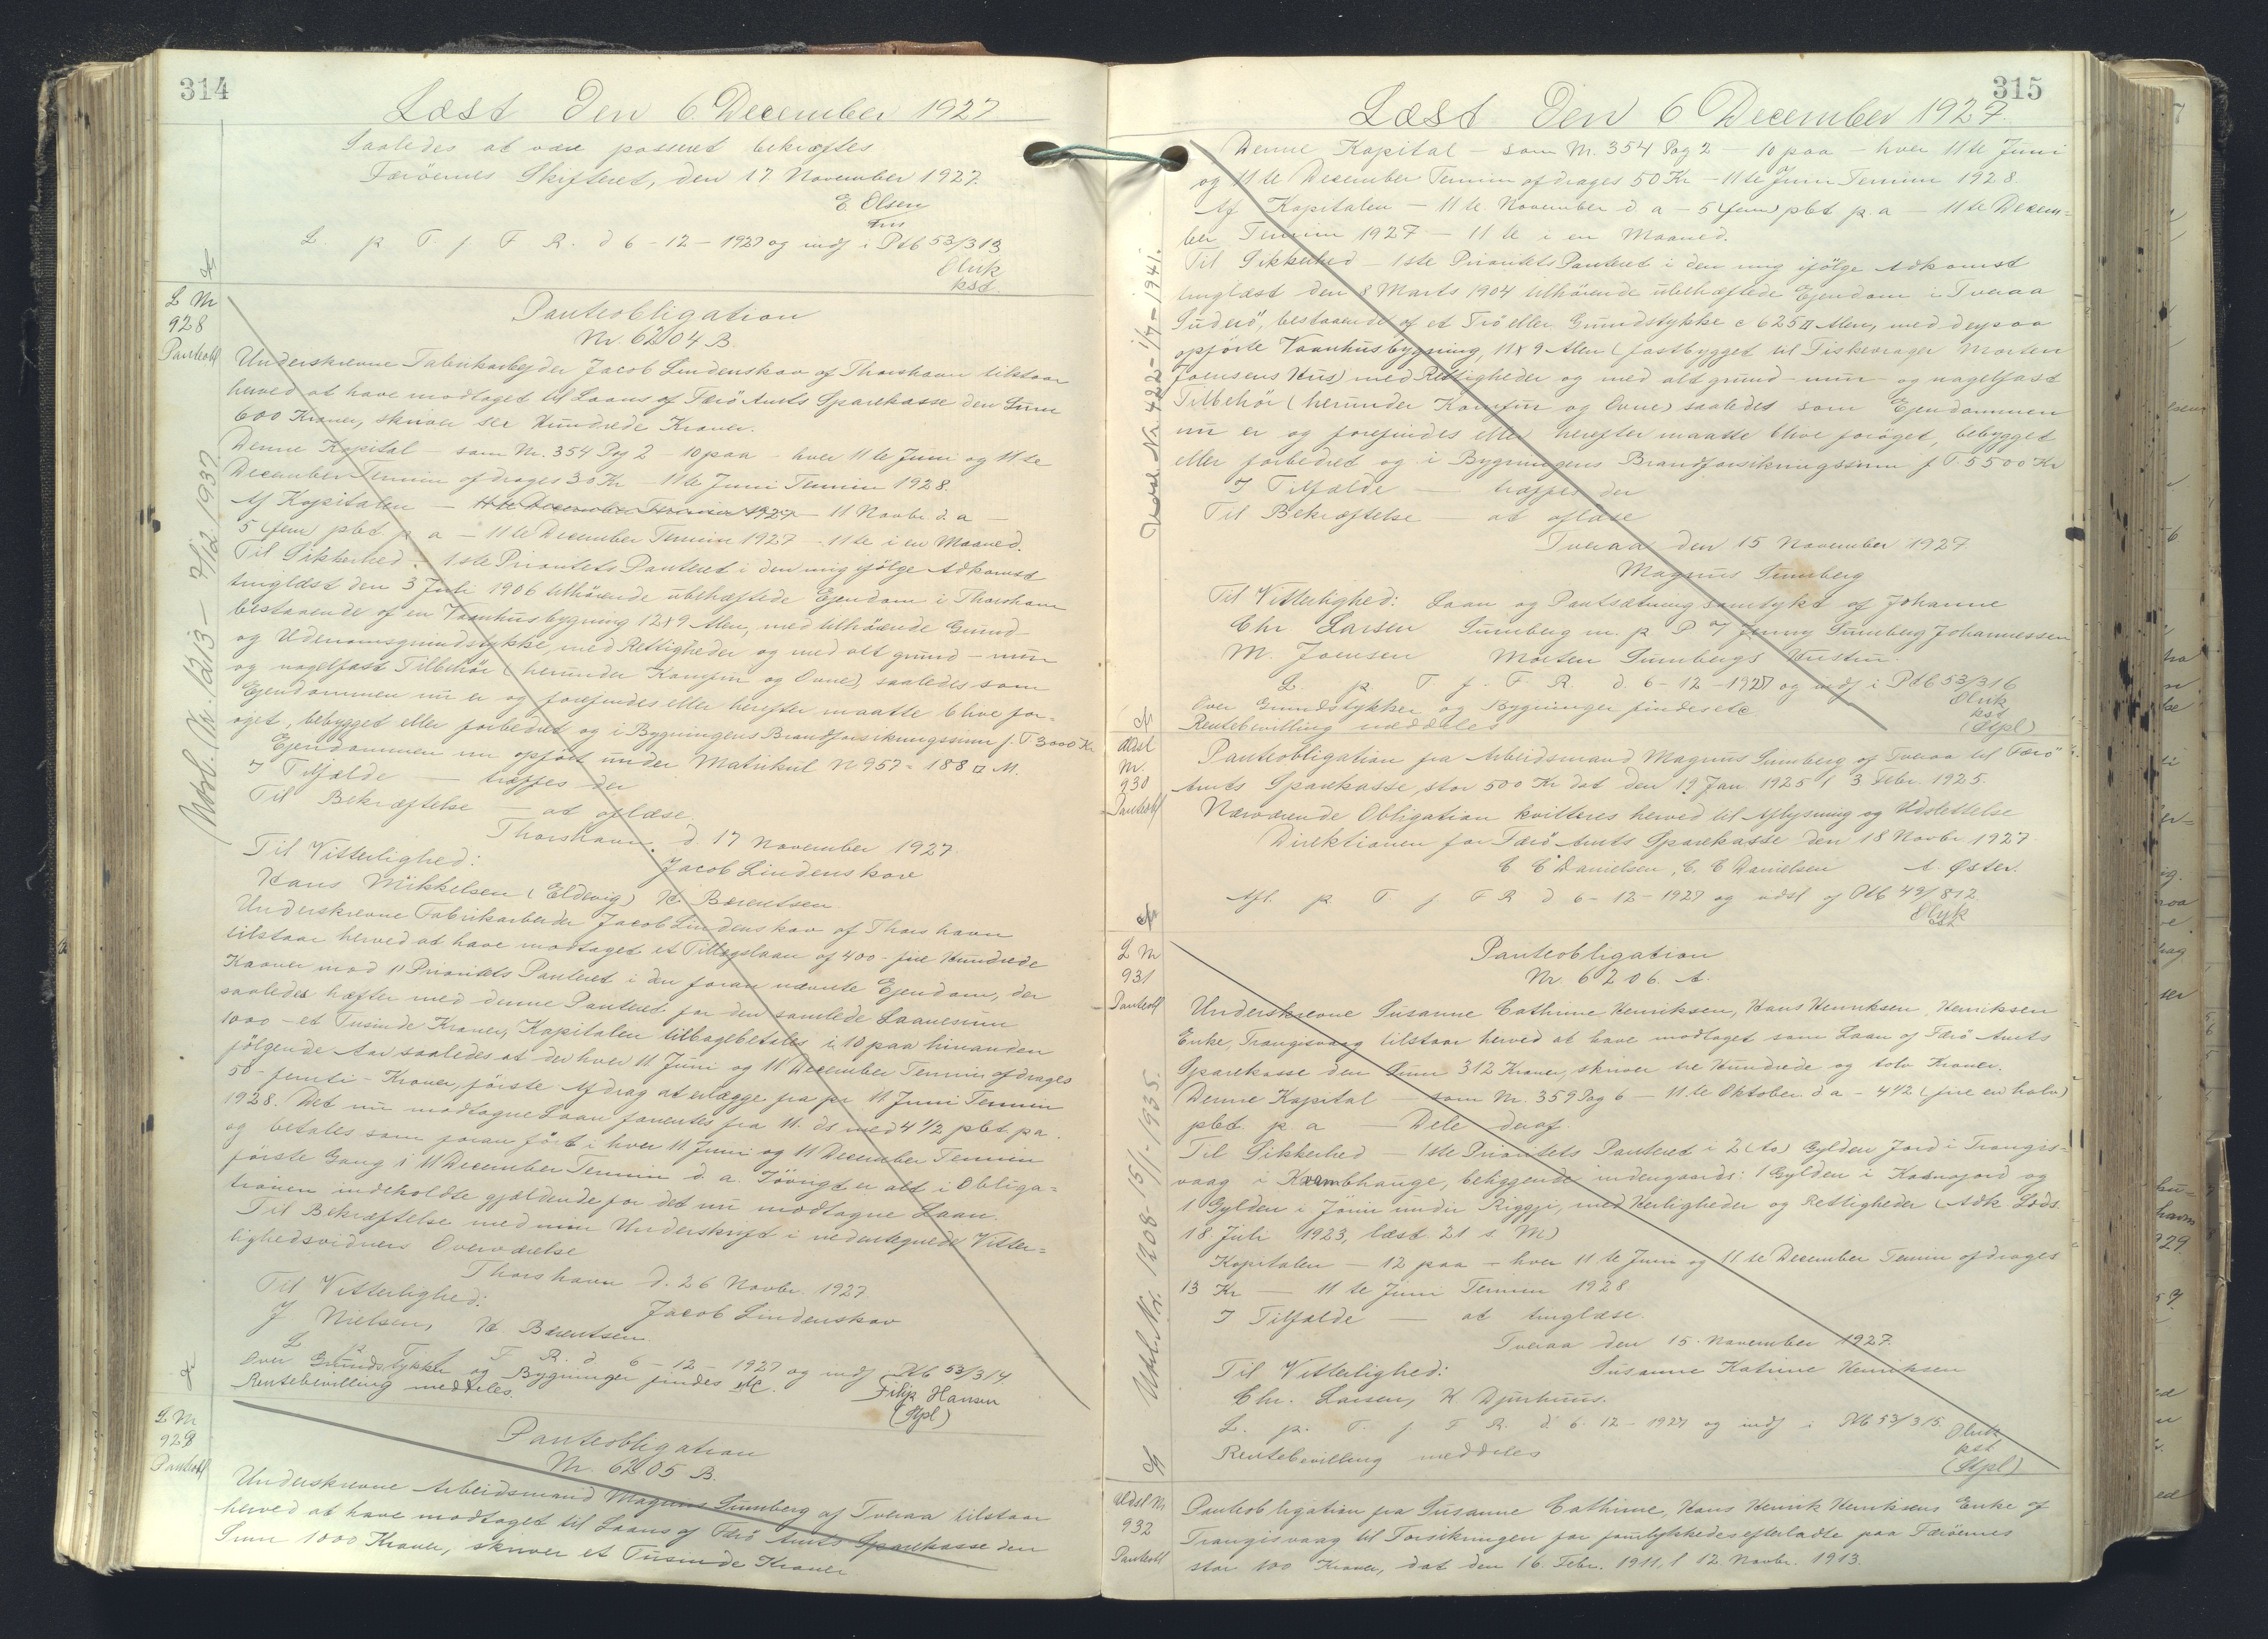 314
Læst Den 6 December 1927
Saaledes at være passeret bekræftes
Færöernes Skifteret, den 17 November 1927.
E. Olsen
Fm
L. p. T. f. F. R. d 6-12-1927 og indf i Ptb 53/313
Oluk
kst.
L Nr
928
Panteobl
Panteobligation
Nr. 6204 B.
Underskrevne Fabrikarbejder Jacob Lindenskov af Thorshavn tilstaar
herved at have modtaget til Laans af Færö Amts Sparekasse den Sum
600 Kroner, skriver sex Hundrede Kroner.
Denne Kapital - som Nr. 354 Pag 2 - 10 paa - hver 11te Juni og 11te
December Termin afdrages 30 Kr - 11te Juni Termin 1928.
Af Kapitalen - 11te December Termin 1927 - 11 Novbr. d. a -
5 (fem) pbt p a - 11te December Termin 1927 - 11te i en Maaned.
Til Sikkerhed: 1ste Prioritets Panteret i den mig ifölge Adkomst
tinglæst den 3 Juli 1906 tilhörende ubehæftede Ejendom i Thorshavn
bestaaende af en Vaanhusbygning 12x9 Alen, med tilhörende Grund-
og Udenomsgrundstykke, med Rettigheder og med alt grund - mur
og nagelfast Tilbehör (herunder Komfur og Ovne), saaledes som
Ejendommen nu er og forefindes eller herefter maatte blive for=
öget, bebygget eller forbedret og i Bygningens Brandforsikringssum f. T 3000 Kr
Ejendommen nu opfört under Matrikul N 957 = 188 □ M.
I Tilfælde - træffes der
Til Bekræftelse - at aflæse
Thorshavn d. 17 November 1927.
Til Vitterlighed:
Jacob Lindenskov
Hans Mikkelsen (Eldevig) H. Barentsen
Underskrevne Fabrikarbeider Jacob Lindenskov af Thorshavn
tilstaar herved at have modtaget et Tillægslaan af 400 - fire Hundrede
Kroner mod 1' Prioritets Panteret i den foran nævnte Ejendom, der
saaledes hæfter med denne Panteret for den samlede Laanesum
1000 - et Tusinde Kroner, Kapitalen tilbagebetales i 10 paa hinanden
fölgende Aar saaledes at der hver 11 Juni og 11 December Termin afdrages
50 - femti - Kroner, förste Afdrag at erlægge fra pr. 11 Juni Termin
1928. Det nu modtagne Laan forrentes fra 11. ds med 4 1/2 pbt pa.
og betales som foran fört i hver 11 Juni og 11 December Termin
förste Gang i 11 December Termin d. a. Iövrigt er alt i Obliga=
tionen indeholdte gjældende for det nu modtagne Laan.
Til Bekræftelse med min Underskrift i nedentegnede Vitter=
lighedsvidners Overværelse
Thorshavn d. 26 Novbr 1927
Til Vitterlighed:
Jacob Lindenskov
J Nielsen, H. Barentsen
L p T f F. R. d 6-12-1927 og indf i Ptb 53/314
Over Grundstykker og Bygninger findes etc.
Rentebevilling meddeles.
Filip Hansen
(Stpl)
Nobl. Nr. 1213 - 7/12 1937
L Nr
929
Panteobl
Panteobligation
Nr. 6205 B.
Underskrevne Arbeidsmand Magnus Sumberg af Tveraa tilstaar
herved at have modtaget til Laans af Færö Amts Sparekasse den
Sum 1000 Kroner, skriver et Tusinde Kroner
315
Læst Den 6 December 1927.
Denne Kapital - som Nr. 354 Pag 2 - 10 paa - hver 11te Juni
og 11te December Termin afdrages 50 Kr - 11te Juni Termin 1928.
Af Kapitalen - 11te November d a - 5 (fem) pbt p. a - 11te Decem=
ber Termin 1927 - 11te i en Maaned.
Til Sikkerhed - 1ste Prioritets Panteret i den mig ifölge Adkomst
tinglæst den 8 Marts 1904 tilhörende ubehæftede Ejendom i Tveraa
Suderö, bestaaende af et Trö eller Grundstykke c 625 □ Alen, med derpaa
opförte Vaanhusbygning, 11x9 Alen (fastbygget til Fiskevrager Morten
Joensens Hus) med Rettigheder og med alt grund - mur - og nagelfast
Tilbehör (herunder Komfur og Ovne) saaledes som Ejendommen
nu er og forefindes eller herefter maatte blive foröget, bebygget
eller forbedret og i Bygningens Brandforsikringssum f T. 5500 Kr
I Tilfælde - træffes der
Til Bekræftelse - at aflæse
Tveraa den 15 November 1927
Magnus Sumberg
Til Vitterlighed: Laan og Pantsætning samtykt af Johanne
Chr Larsen Sumberg m. p. P J Jenny Sumberg Johannessen
M. Joensen Morten Sumbergs Hustru.
L. p. T. f. F. R. d. 6-12-1927 og indf i Ptb 53/316
Over Grundstykker og Bygninger findes etc
Rentebevilling meddeles
Oluk
kst
(Stpl)
Nr. 422 - 1/7-1941.
Udsl
Nr.
930
Panteobl
Panteobligation fra Arbeidsmand Magnus Sumberg af Tveraa til Færö
Amts Sparekasse, stor 500 Kr dat den 19 Jan. 1925 l 3 Febr. 1925.
Nærværende Obligation kvitteres herved til Aflysning og Udslettelse
Direktionen for Færö Amts Sparekasse den 18 Novbr 1927
C C Danielsen, C. C Danielsen A. Øster.
Afl. p T f F R d 6-12-1927 og udsl af Ptb 49/812
Oluk
kst
L Nr
931
Panteobl
Panteobligation
Nr 6206. A.
Underskrevne Susanne Cathrine Henriksen, Hans Henriksen Henriksen
Enke, Trangisvaag tilstaar herved at have modtaget som Laan af Færö Amts
Sparekasse den Sum 312 Kroner, skriver tre Hundrede og tolv Kroner.
Denne Kapital - som Nr. 359 Pag 6 - 11te Oktober d a - 4 1/2 (fire en halv)
pbt. p. a - Dele deraf.
Til Sikkerhed - 1ste Prioritets Panteret i 2 (to) Gylden Jord i Trangis-
vaag i Krambhauge, beliggende indengaards: 1 Gylden i og
1 Gylden i undir Riggji, med Herligheder og Rettigheder (Adk Sods
18 Juli 1923, læst 21 s. M)
Kapitalen - 12 paa - hver 11te Juni og 11te December Termin afdrages
13 Kr - 11te Juni Termin 1928
I Tilfælde - at tinglæse.
Tveraa den 15. November 1927.
Til Vitterlighed: Susanne Katrine Henriksen
Chr. Larsen, K. Djurhuus.
L. p. T. f F R. d 6-12-1927 og indf i Ptb 53/315.
Rentebevilling meddeles
Oluk
kst
(Stpl)
Nr. 1208 - 15/11-1935.
Udsl Nr
932
Panteobl
Panteobligation fra Susanne Cathrine, Hans Henrik Henriksens Enke af
Trangisvaag til Forsikringen for forulykkedes efterladte paa Færöerne
stor 100 Kroner, dat den 16. Febr. 1911, l 12 Novbr. 1913.